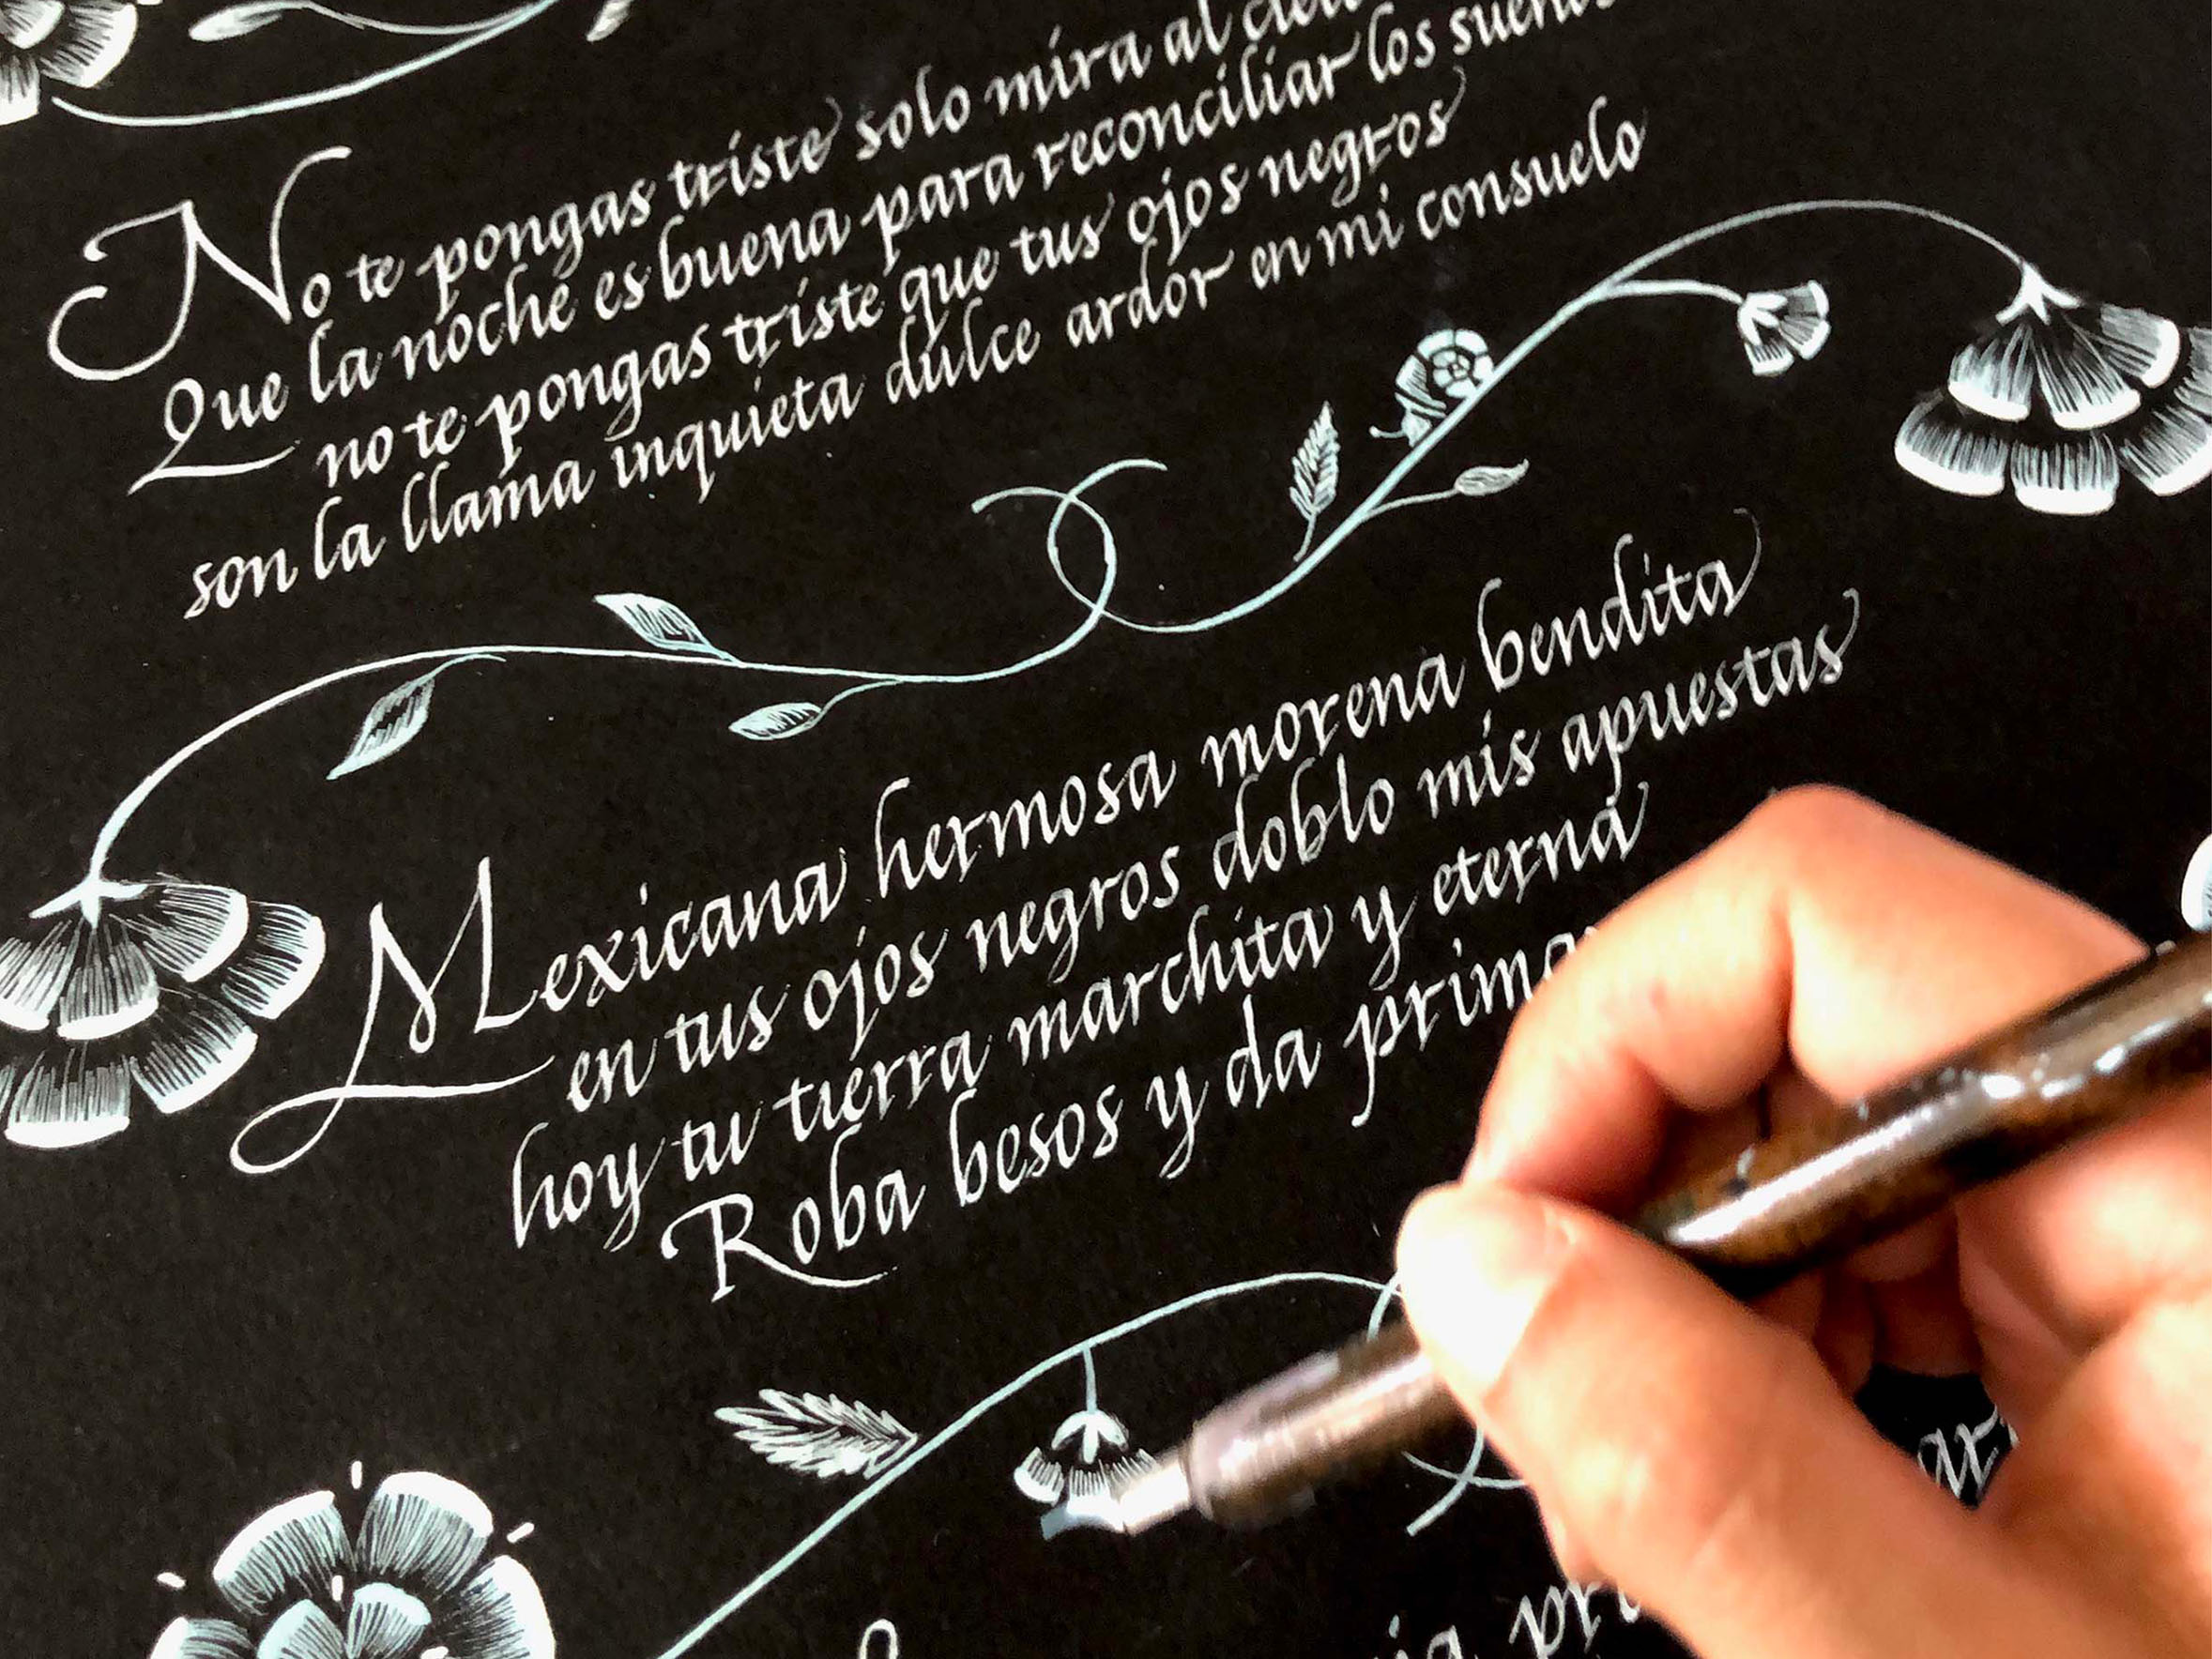 No te pongas triste solo mira al
Que la noche es buena para reconciliar los
no te pongas triste que tus ojos negros
son la llama inquieta dulce ardor en mi consuelo
Mexicana hermosa morena bendita
en tus ojos negros doblo mis apuestas
hoy tu tierra marchita y eterna
Roba besos y da